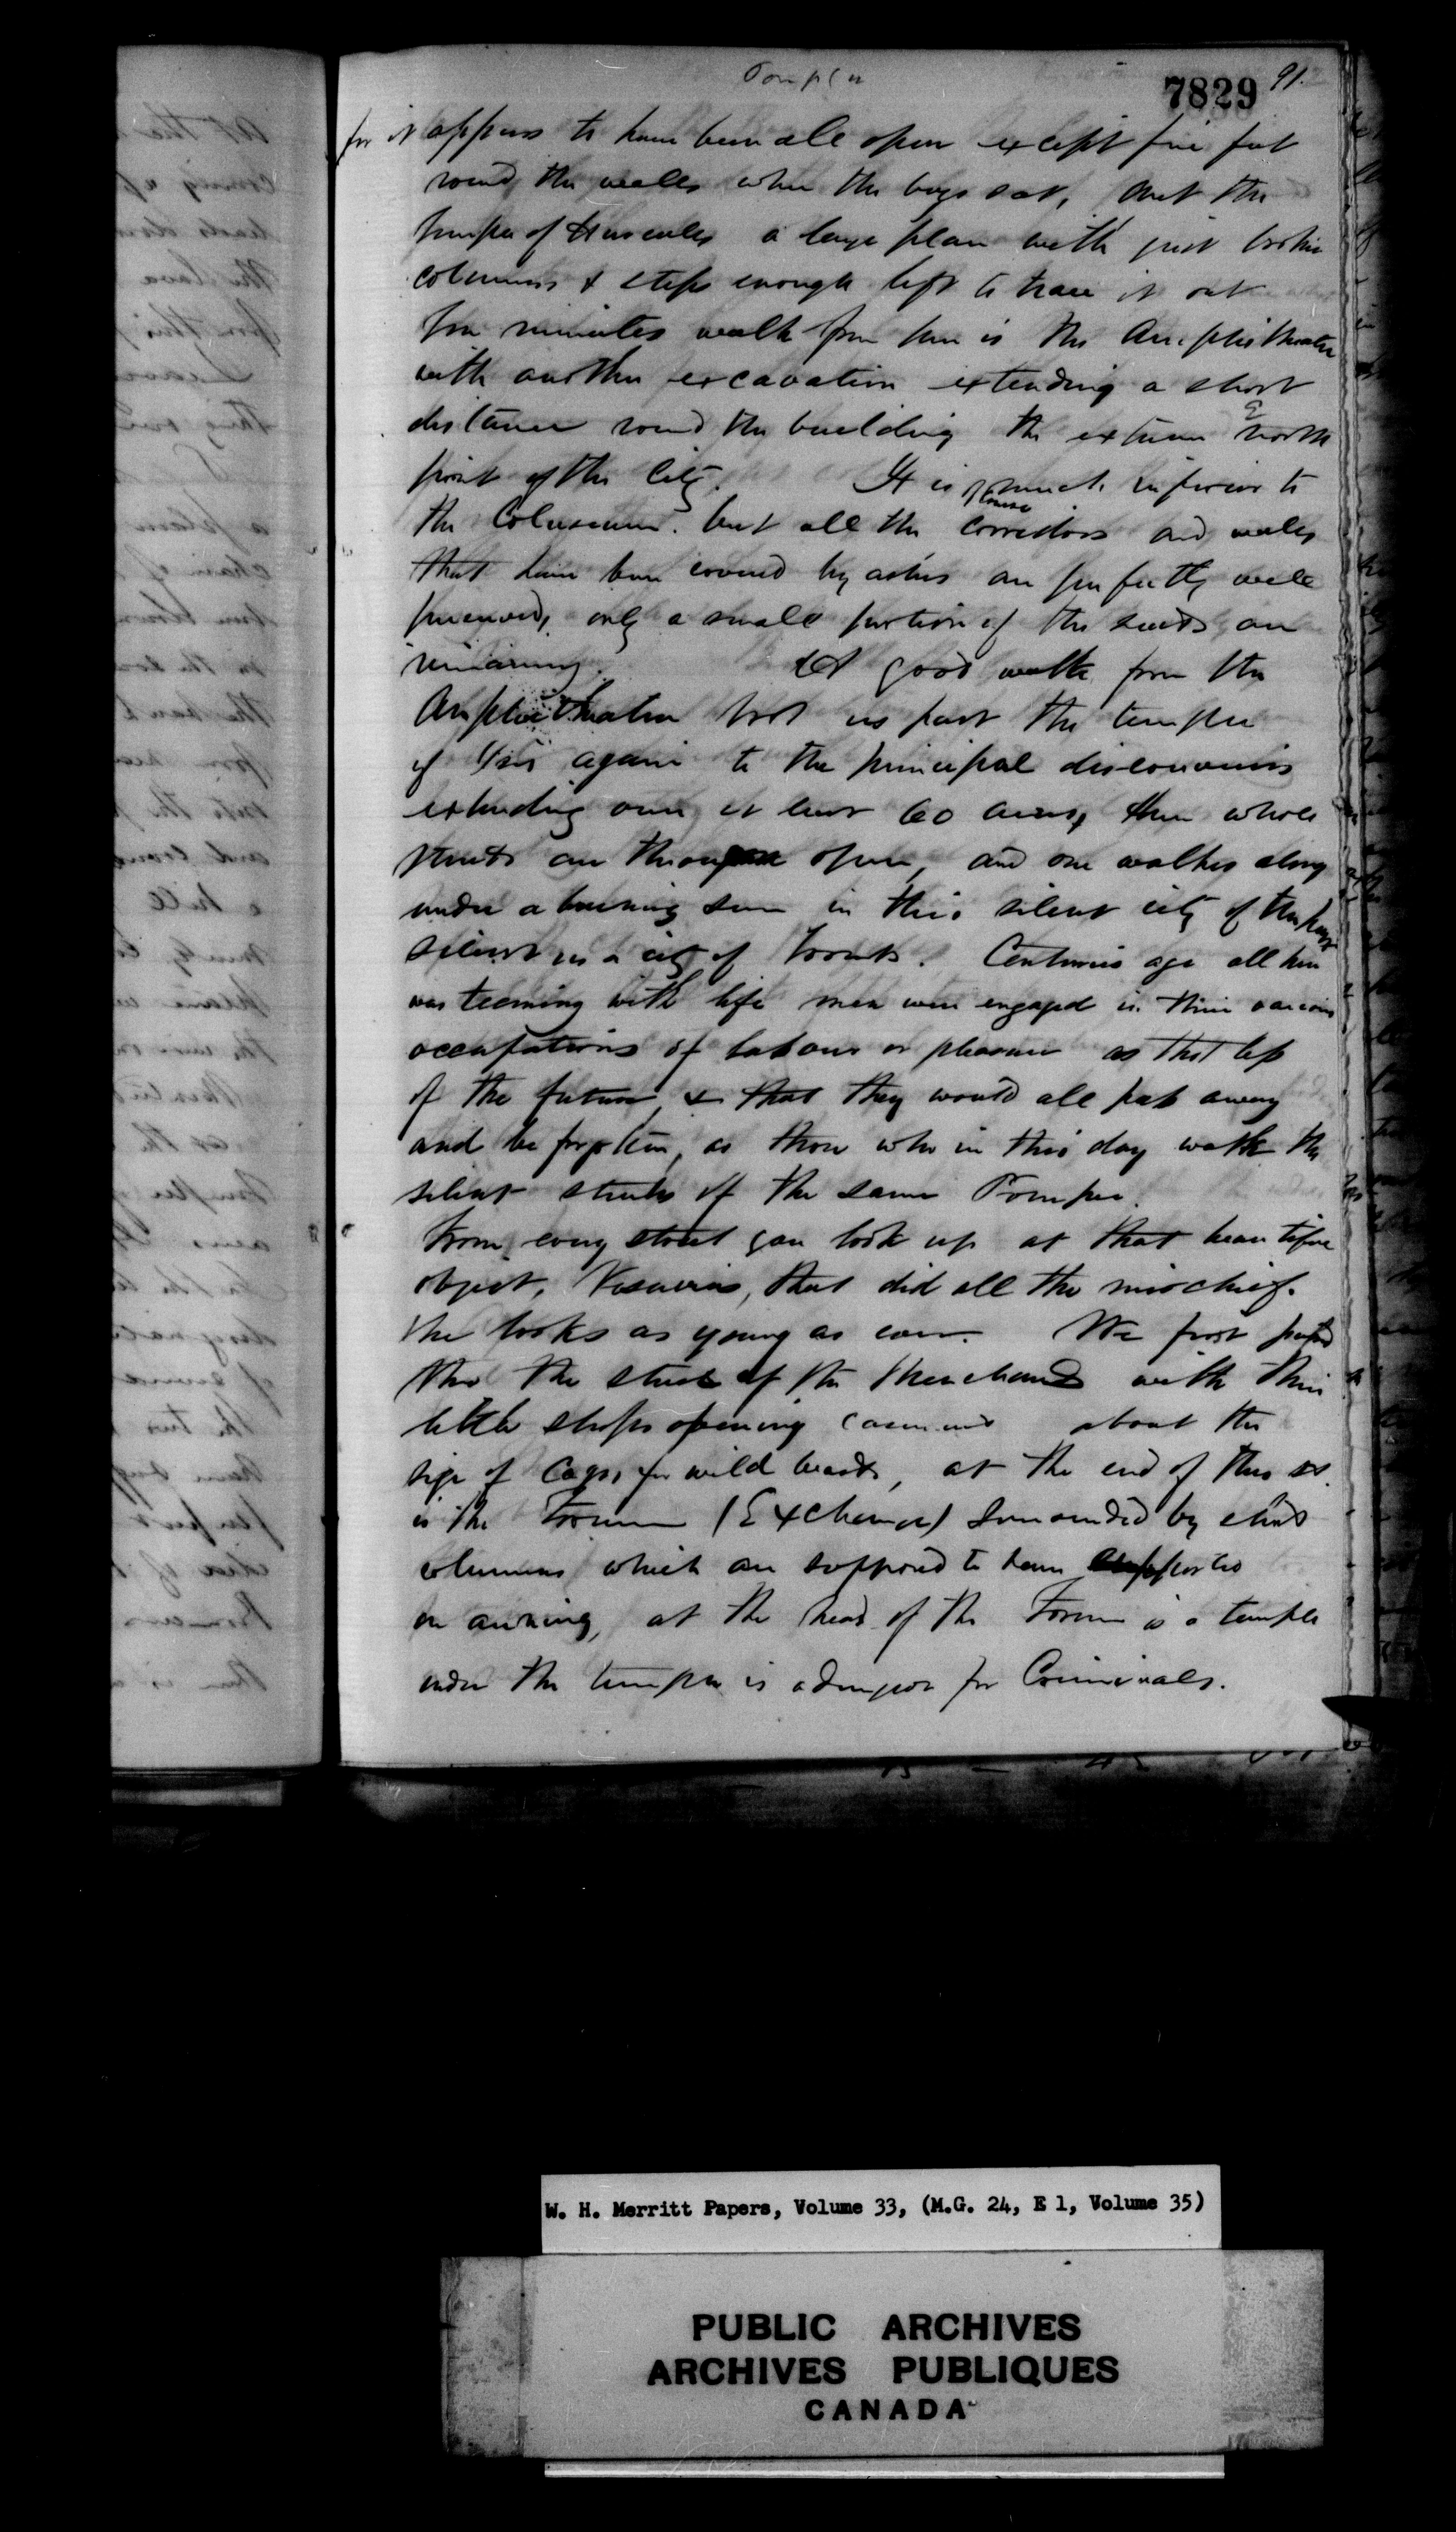 Pompeii
7829 91.
for it appears to have been all open except five feet
round the walls where the boys sat, next the
temple of Hercules a large place with just broken
columns & steps enough left to trace it out
five minutes walk from here is the Amphitheatre
with another excavation extending a short
distance round the building the extreme north
E
point of the City. It is of course much inferior to
the Coluseum. but all the corridors and walls
that have been covered by ashes are perfectly well
preserved, only a small portion of the seats are
remaining. A good walk from the
Amphitheatre took us past the temple
of Isis again to the principal discoveries
extending over at least 60 acres, here whole
streets are thrown open, and one walks along
under a burning sun in this silent city of the past
silent as a city of tombs. Centuries ago all here
was teeming with life men were engaged in their various
occupations of labour or pleasure as that
of the future, & that they would all pass away
and be forgotten, as those who in this day walk the
silent streets of the same Pompeii.
From every street you look up at that beautiful
object, Vesuvius, that did all the mischief.
She looks as young as ever. We first passed
thro the street of the Merchants with their
little shops opening about the
size of Cages for wild beasts, at the end of this st
is the Forum (Exchange) surrounded by
columns which are supposed to have supported
an awning, at the head of the Forum is a temple
under the temple is a dungeon for Criminals.
W. H. Merritt Papers, Volume 33, (M.G. 24, E 1, Volume 35)
PUBLIC ARCHIVES
ARCHIVES PUBLIQUES
CANADA